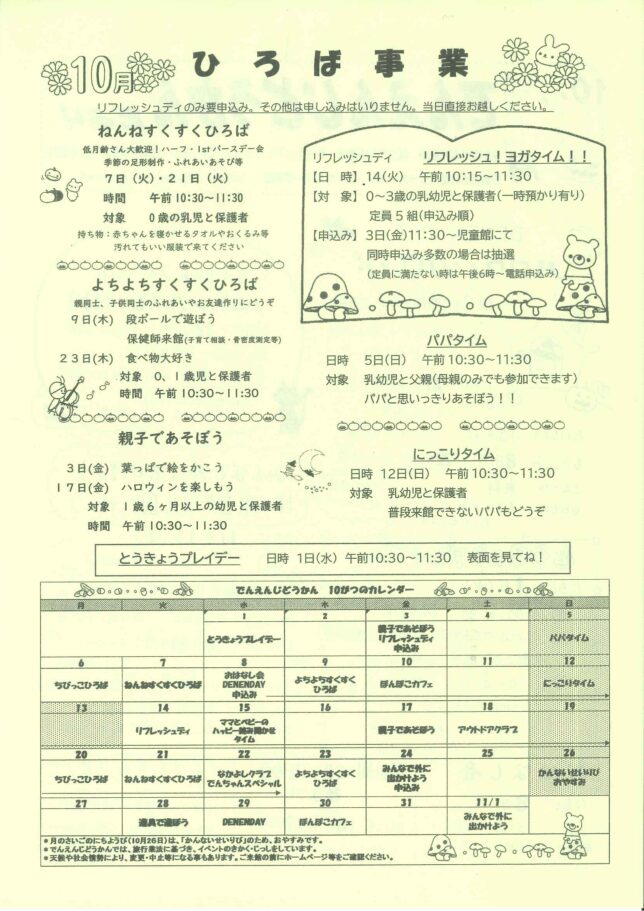 10月 ひろば事業
リフレッシュディのみ要申込み。その他は申し込みはいりません。当日直接お越しください。
ねんねすくすくひろば
低月齢さん大歓迎！ハーフ・1stバースデー会
季節の足形制作・ふれあいあそび等
7日（火）・21日（火）
時間 午前10:30～11:30
対象 0歳の乳児と保護者
持ち物：赤ちゃんを寝かせるタオルやおくるみ等
汚れてもいい服装で来てください
よちよちすくすくひろば
親同士、子供同士のふれあいやお友達作りにどうぞ
9日(木) 段ボールで遊ぼう
保健師来館(子育て相談・骨密度測定等)
23日(木) 食べ物大好き
対象 0、1歳児と保護者
時間 午前10:30～11:30
親子であそぼう
3日(金) 葉っぱで絵をかこう
17日(金) ハロウィンを楽しもう
対象 1歳6ヶ月以上の幼児と保護者
時間 午前10:30～11:30
リフレッシュディ リフレッシュ！ヨガタイム！！
【日 時】14(火) 午前10:15～11:30
【対 象】0～3歳の乳幼児と保護者(一時預かり有り)
定員5組(申込み順)
【申込み】3日(金)11:30～児童館にて
同時申込み多数の場合は抽選
(定員に満たない時は午後6時～電話申込み)
パパタイム
日時 5日(日) 午前10:30～11:30
対象 乳幼児と父親(母親のみでも参加できます)
パパと思いっきりあそぼう！！
にっこりタイム
日時 12日(日) 午前10:30～11:30
対象 乳幼児と保護者
普段来館できないパパもどうぞ
とうきょうプレイデー 日時 1日(水) 午前10:30～11:30 表面を見てね！
でんえんじどうかん 10がつのカレンダー
月 火 水 木 金 土 日
1 2 3 4 5
とうきょうプレイデー 親子であそぼう リフレッシュディ 申込み パパタイム
6 7 8 9 10 11 12
ちびっこひろば ねんねすくすくひろば おはなし会 DENENDAY 申込み よちよちすくすくひろば ぽんぽこカフェ にっこりタイム
13 14 15 16 17 18 19
リフレッシュディ ママとベビーのハッピー読み聞かせタイム 親子であそぼう アウトドアクラブ
20 21 22 23 24 25 26
ちびっこひろば ねんねすくすくひろば なかよしクラブ でんちゃんスペシャル よちよちすくすくひろば みんなで外に出かけよう 申込み かんないせいりび おやすみ
27 28 29 30 31 11/1
遊具で遊ぼう DENENDAY ぽんぽこカフェ みんなで外に出かけよう
＊月のさいごのにちようび(10月26日)は、「かんないせいりび」のため、おやすみです。
＊でんえんじどうかんでは、旅行業法に基づき、イベントのきかく・じっしをしています。
＊天候や社会情勢により、変更・中止等になる事もあります。ご来館の前にホームページ等をご確認ください。